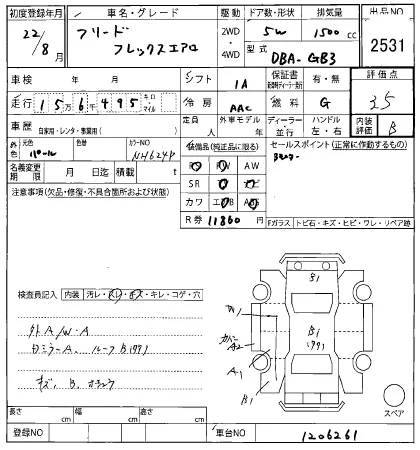 初度登録年月 車名・グレード 駆動 ドア数・形状 排気量 出品NO
22/8月 フリード フレックスエアロ 2WD・4WD 5W 1500cc 2531
型式 DBA-GB3
車検 年 月 シフト IA 保証書 有・無 評価点
走行 15万6千495 キロ・マイル 冷房 AAC 燃料 G 3.5
車歴 自家用・レンタ・事業用( ) 定員 人 外車モデル 年 ディーラー・並行 ハンドル 左・右 内装評価 B
元色 パール 色替 カラーNO NH624P 装備品(純正品に限る) セールスポイント(正常に作動するもの)
名義変更期限 月 日迄 積載 t
注意事項(欠品・修復・不具合箇所および状態)
PW AW
SR
カワ
R券 11860
Fガラス トビ石・キズ・ヒビ・ワレ・リペア跡
検査員記入 内装 汚レ・スレ・キズ・キレ・コゲ・穴
外A/W・A
カミラーA. ルーフB(99)
キズ、B.
B1
W1
カバー A2
B1
(99)
A1
B1
スペア
長さ cm 幅 cm 高さ cm
登録NO 車台NO 1206261